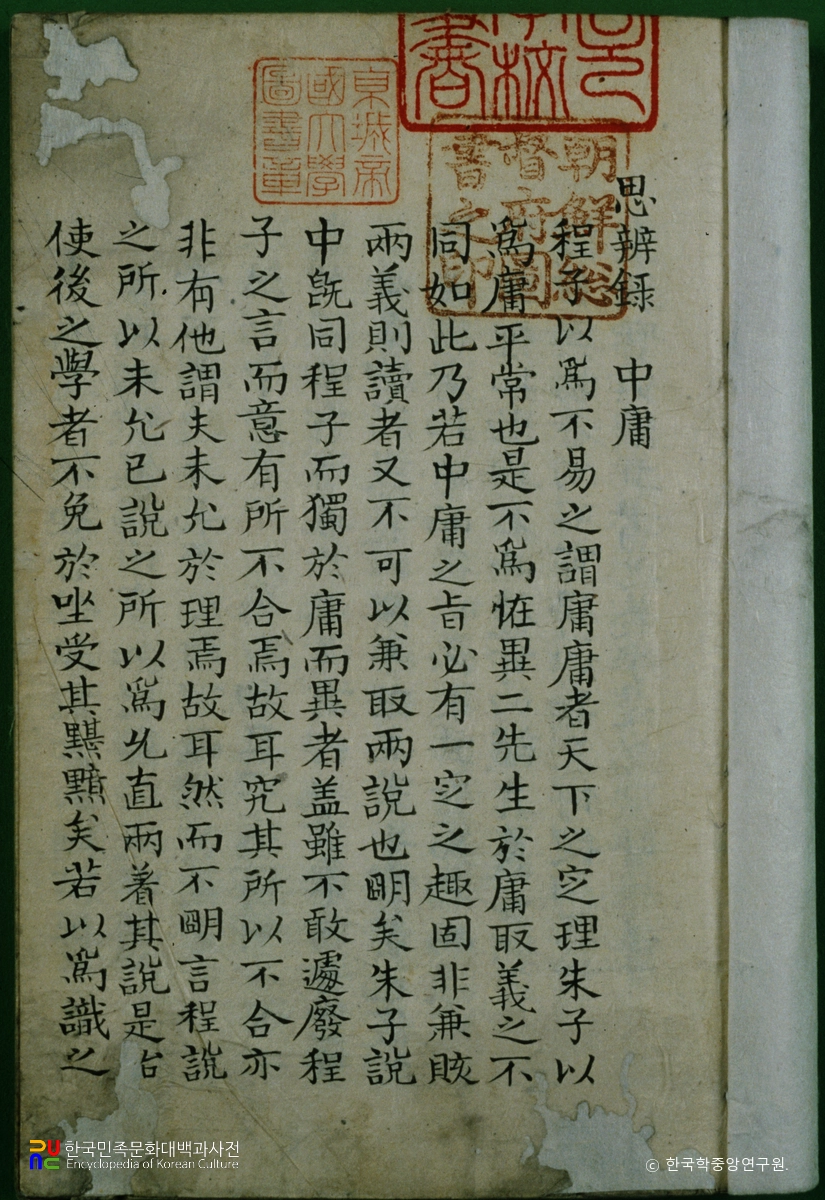 思辨録 中庸
程子以爲不易之謂庸庸者天下之定理朱子以
爲庸平常也是不爲恠異二先生於庸取義之不
同如此乃若中庸之旨必有一定之趣固非兼賅
兩義則讀者又不可以兼取兩說也明矣朱子說
中旣同程子而獨於庸而異者盖雖不敢遽廢程
子之言而意有所不合焉故耳究其所以不合亦
非有他謂夫未允於理焉故耳然而不明言程說
之所以未允已說之所以爲允直兩着其說是
使後之學者不免於坐受其黮黯矣若以爲識之
京城帝
國大學
圖書章
朝鮮総
督府圖
書之印
한국민족문화대백과사전
Encyclopedia of Korean Culture
ⓒ 한국학중앙연구원.